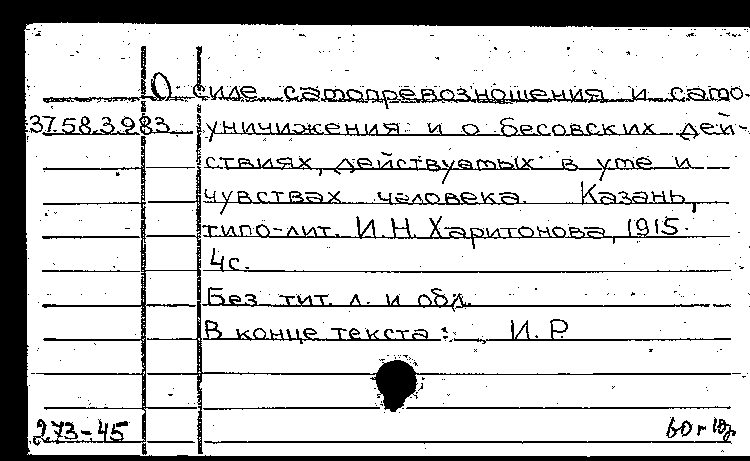 О силе самопревозношения и само-
37.58.3.983 уничижения и о бесовских дей-
ствиях, действуемых в уме и
чувствах человека. Казань,
типо-лит. И.Н. Харитонова, 1915.
4с.
Без тит. л. и обл.
В конце текста: И. Р.
273-45